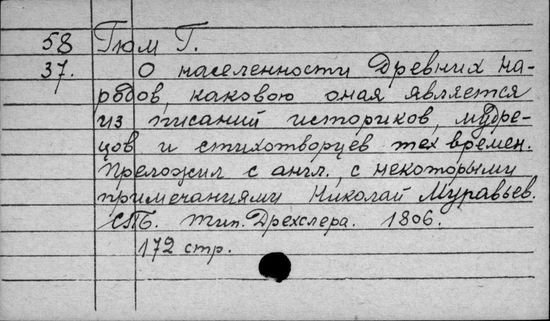 58 Гюм Г.
37. О населенности Древних на-
родов, каковою оная является
из писаний историков, мудре-
цов и стихотворцев тех времен.
Преложил с англ., с некоторыми
примечаниями Николай Муравьев.
СПБ. Тип. Дрехслера. 1806.
172 стр.